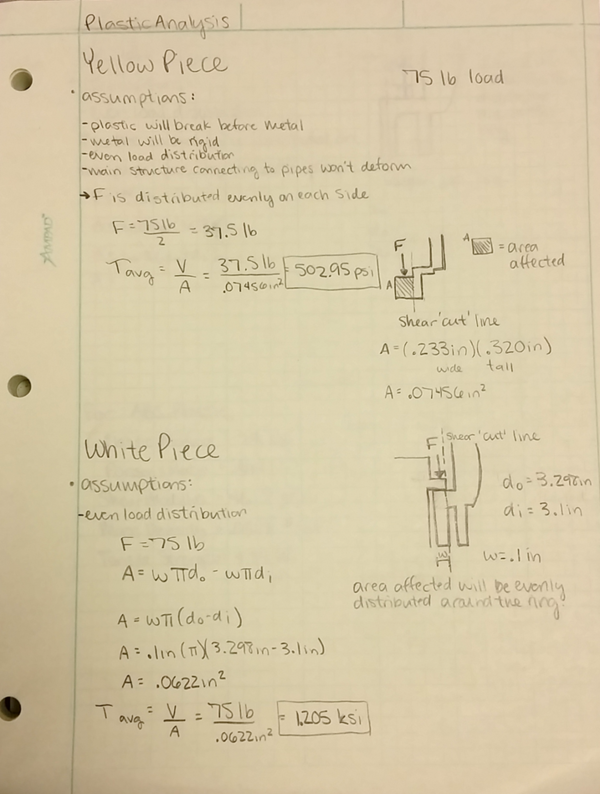 Plastic Analysis
Yellow Piece
75 lb load
• assumptions:
- plastic will break before metal
- metal will be rigid
- even load distribution
- main structure connecting to pipes won't deform
→ F is distributed evenly on each side
F = 75 lb / 2 = 37.5 lb
T avg = V / A = 37.5 lb / .07456 in² = 502.95 psi
F
A
A = area affected
shear 'cut' line
A = (.233in)(.320in)
wide tall
A = .07456 in²
White Piece
• assumptions:
- even load distribution
F = 75 lb
A = wπd₀ - wπdᵢ
A = wπ(d₀-dᵢ)
A = .1in(π)(3.298in-3.1in)
A = .0622in²
T avg = V / A = 75 lb / .0622in² = 1.205 ksi
F
shear 'cut' line
d₀ = 3.298in
dᵢ = 3.1in
w
w = .1 in
area affected will be evenly
distributed around the ring.